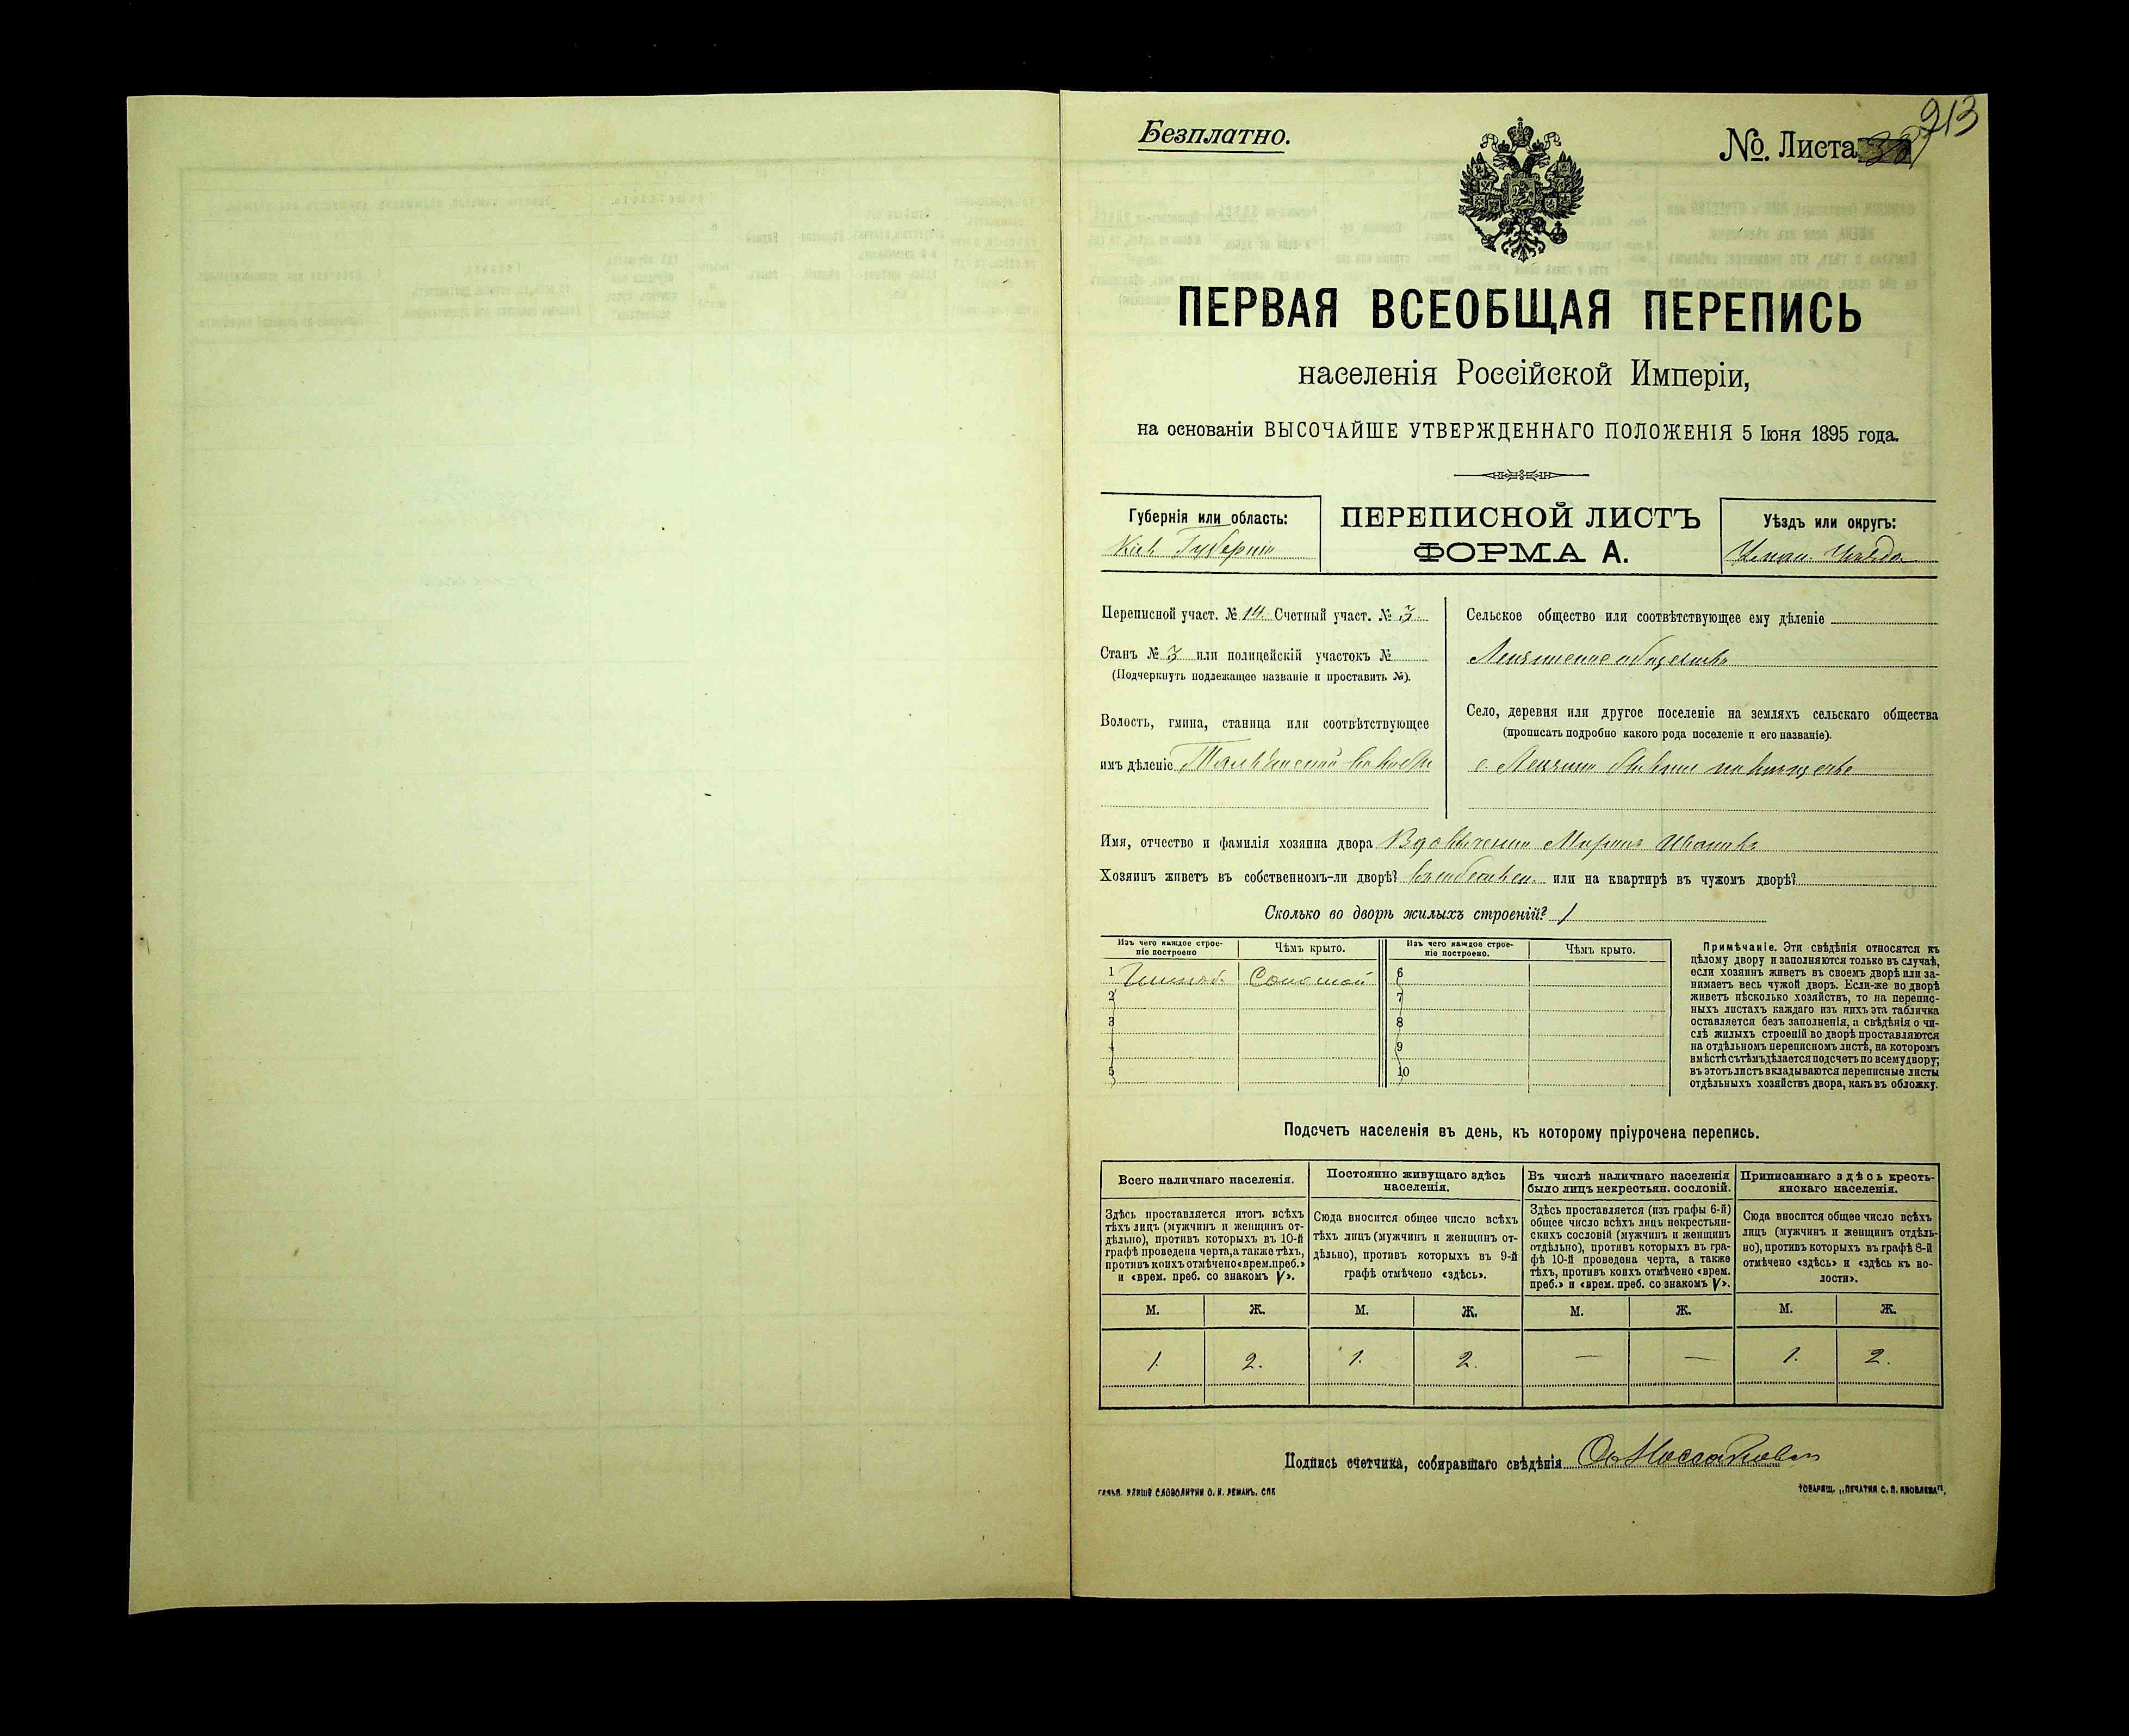 Безплатно.
№. Листа 913
ПЕРВАЯ ВСЕОБЩАЯ ПЕРЕПИСЬ
населенія Россійской Имперіи,
на основаніи ВЫСОЧАЙШЕ УТВЕРЖДЕННАГО ПОЛОЖЕНІЯ 5 Іюня 1895 года.
Губернія или область:
Кіев Губерніи
ПЕРЕПИСНОЙ ЛИСТЪ
ФОРМА А.
Уѣздъ или округъ:
Уман. Уѣзда
Переписной участ. № 14. Счетный участ. № 3.
Станъ № 3 или полицейскій участокъ №
(Подчеркнуть подлежащее названіе и проставить №).
Волость, гмина, станица или соотвѣтствующее
имъ дѣленіе
Сельское общество или соотвѣтствующее ему дѣленіе
Село, деревня или другое поселеніе на земляхъ сельскаго общества
(прописать подробно какого рода поселеніе и его названіе).
с.
Имя, отчество и фамилія хозяина двора
Хозяинъ живетъ въ собственномъ-ли дворѣ? или на квартирѣ въ чужомъ дворѣ?
Сколько во дворѣ жилыхъ строеній? 1
Изъ чего каждое строе-
ніе построено
Чѣмъ крыто.
Изъ чего каждое строе-
ніе построено.
Чѣмъ крыто.
1 Соломой 6
2 7
3 8
4 9
5 10
Примѣчаніе. Эти свѣдѣнія относятся къ
цѣлому двору и заполняются только въ случаѣ,
если хозяинъ живетъ въ своемъ дворѣ или за-
нимаетъ весь чужой дворъ. Если-же во дворѣ
живетъ нѣсколько хозяйствъ, то на перепис-
ныхъ листахъ каждаго изъ нихъ эта табличка
оставляется безъ заполненія, а свѣдѣнія о чи-
слѣ жилыхъ строеній во дворѣ проставляются
на отдѣльномъ переписномъ листѣ, на которомъ
вмѣстѣ съ тѣмъ дѣлается подсчетъ по всему двору;
въ этотъ листъ вкладываются переписные листы
отдѣльныхъ хозяйствъ двора, какъ въ обложку.
Подсчетъ населенія въ день, къ которому пріурочена перепись.
Всего наличнаго населенія.
Здѣсь проставляется итогъ всѣхъ
тѣхъ лицъ (мужчинъ и женщинъ от-
дѣльно), противъ которыхъ въ 10-й
графѣ проведена черта, а также тѣхъ,
противъ коихъ отмѣчено «врем. преб.»
и «врем. преб. со знакомъ V».
Постоянно живущаго здѣсь
населенія.
Сюда вносится общее число всѣхъ
тѣхъ лицъ (мужчинъ и женщинъ от-
дѣльно), противъ которыхъ въ 9-й
графѣ отмѣчено «здѣсь».
Въ числѣ наличнаго населенія
было лицъ некрестьян. сословій.
Здѣсь проставляется (изъ графы 6-й)
общее число всѣхъ лицъ некрестьян-
скихъ сословій (мужчинъ и женщинъ
отдѣльно), противъ которыхъ въ гра-
фѣ 10-й проведена черта, а также
тѣхъ, противъ коихъ отмѣчено «врем.
преб.» и «врем. преб. со знакомъ V».
Приписаннаго здѣсь кресть-
янскаго населенія.
Сюда вносится общее число всѣхъ
лицъ (мужчинъ и женщинъ отдѣль-
но), противъ которыхъ въ графѣ 8-й
отмѣчено «здѣсь» и «здѣсь къ во-
лости».
М. Ж. М. Ж. М. Ж. М. Ж.
1. 2. 1. 2. — — 1. 2.
Подпись счетчика, собиравшаго свѣдѣнія
ТОВАРИЩ. „ПЕЧАТНЯ С. П. ЯКОВЛЕВА“.